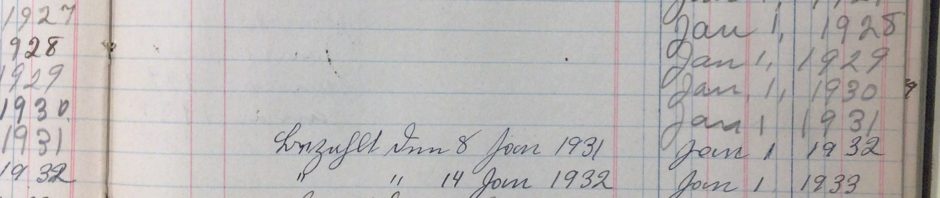 1927
928 Jan 1, 1928
1929 Jan 1, 1929
1930 Jan, 1, 1930
1931 Jan 1 1931
Bezahlt den 8 Jan 1931 Jan 1 1932
1932 " " 14 Jan 1932 Jan 1 1933